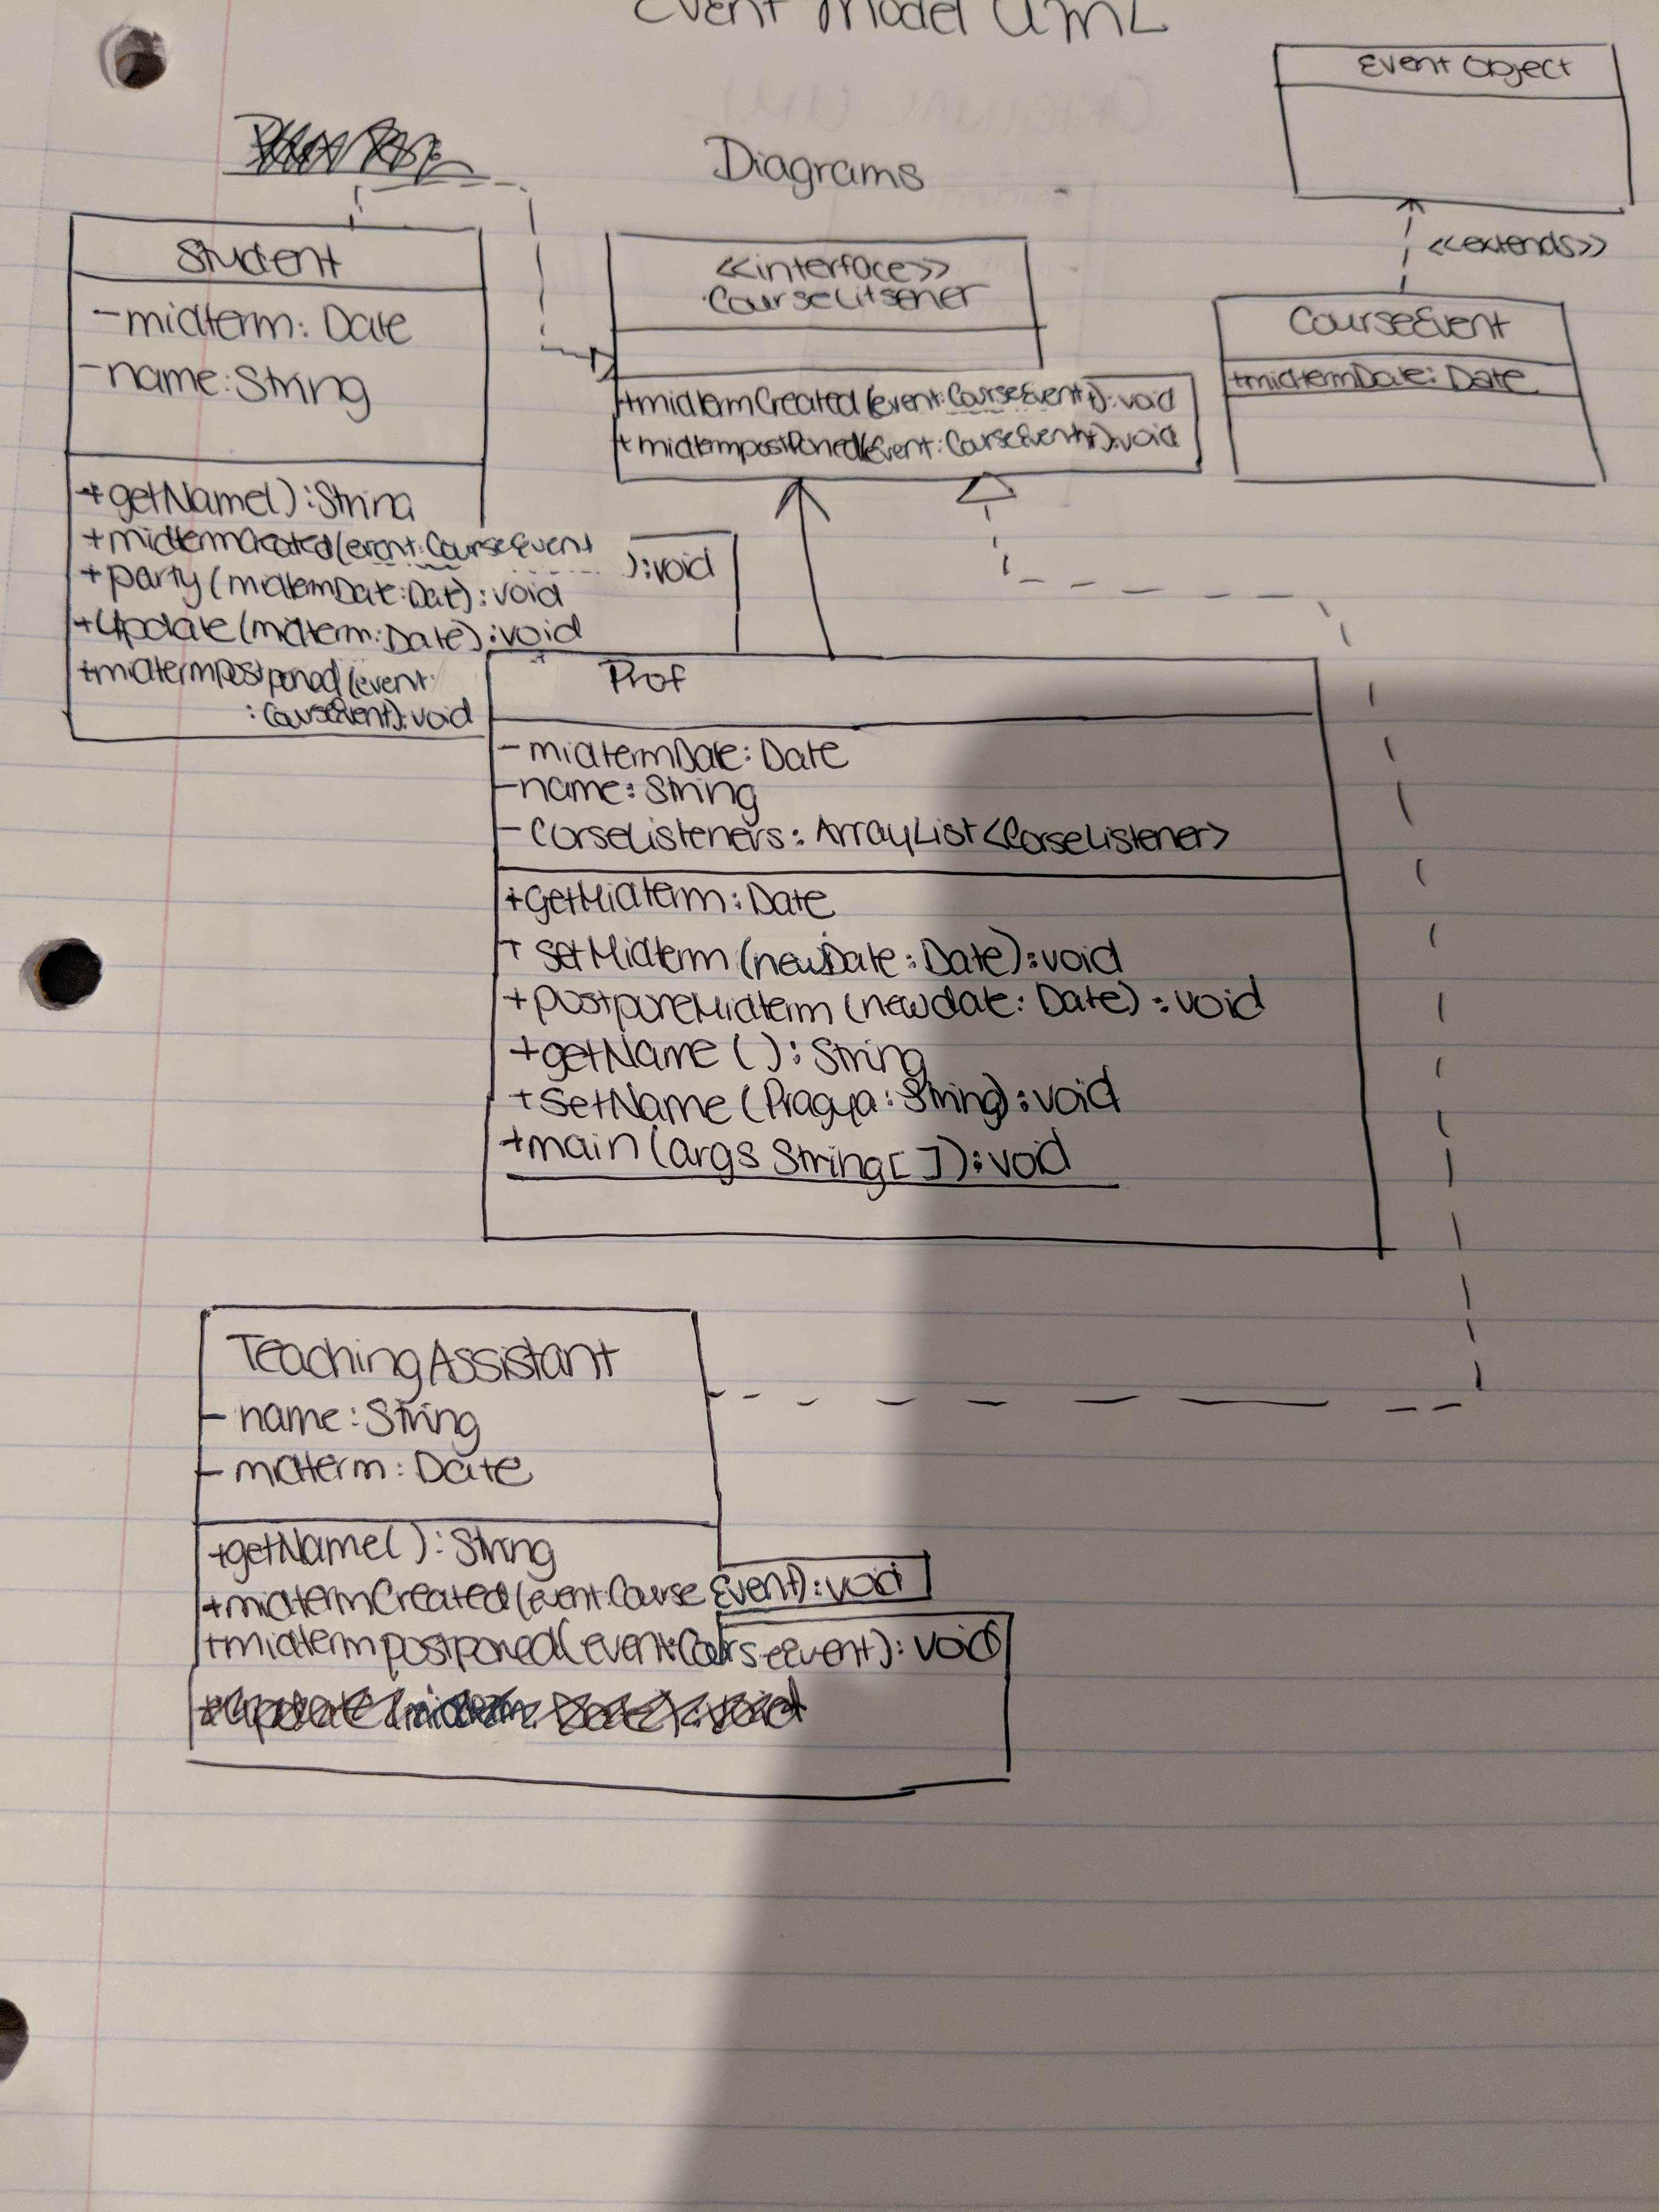 Event Model UML
Event Object
Diagrams
<<extends>>
Student
- midterm: Date
- name: String
+ getName(): String
+ midtermCreated(event: CourseEvent ): void
+ party(midtermDate: Date): void
+ Update(midterm: Date): void
+ midtermpostponed(event:
: CourseEvent): void
<<interface>>
CourseLitsener
+midtermCreated(event: CourseEvent): void
+ midtermpostPoned(Event: CourseEvent): void
CourseEvent
+midtermDate: Date
Prof
- midtermDate: Date
- name: String
- CorseListeners: ArrayList<CorseListener>
+ GetMidterm: Date
+ setMidterm(newDate: Date): void
+ postponeMidterm(newdate: Date): void
+ getName(): String
+ SetName(Pragya: String): void
+ main(args String[]): void
TeachingAssistant
- name: String
- midterm: Date
+getName(): String
+midtermCreated(event:Course Event): void
+midtermpostponed(event:CourseEvent): void